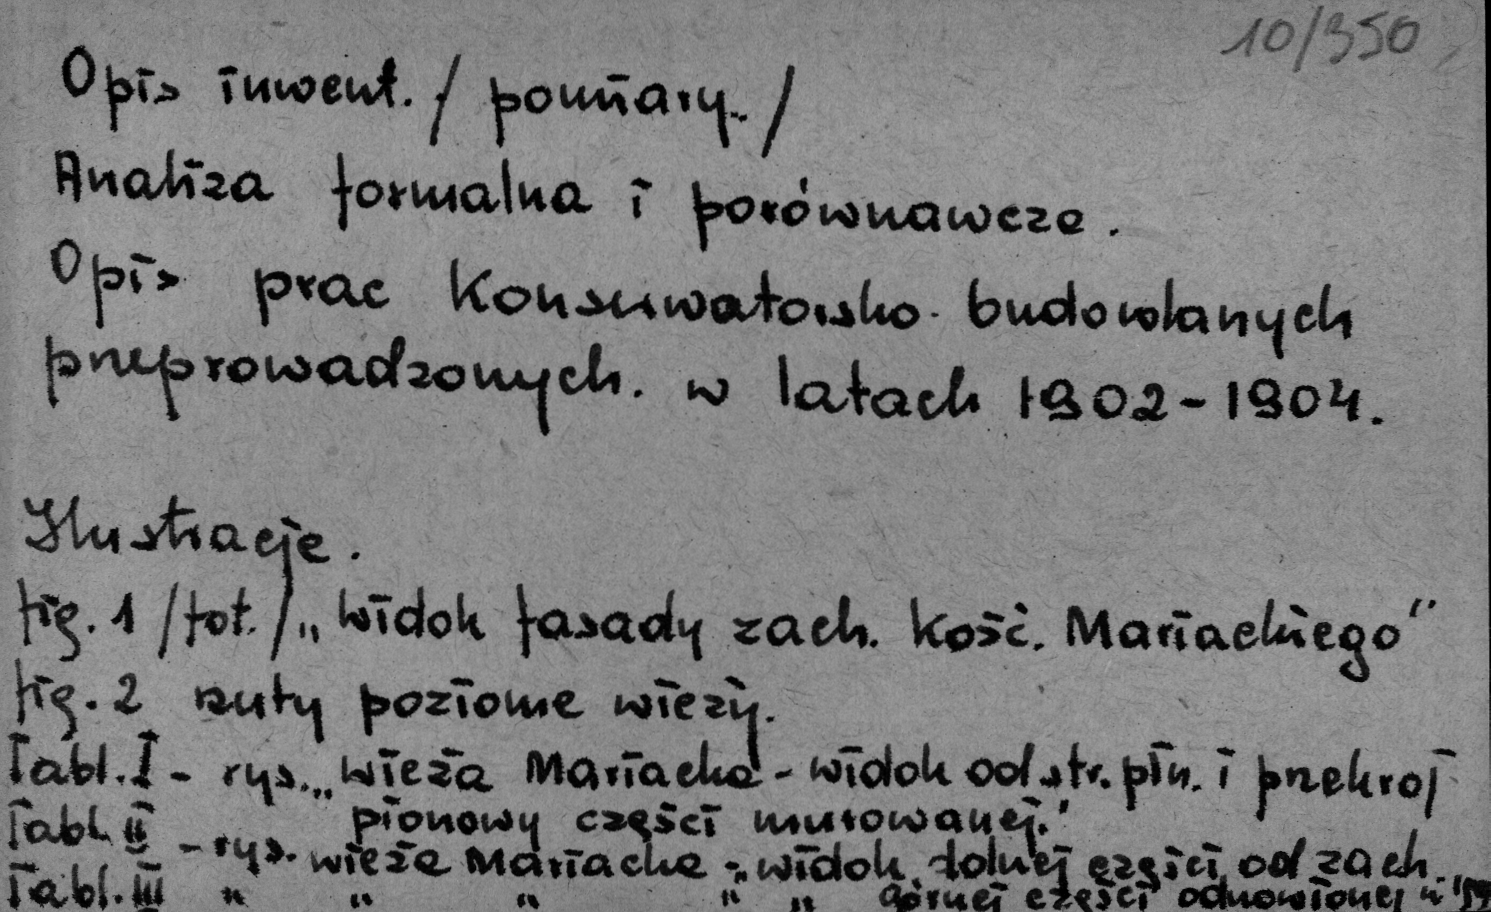 10/350
Opis inwent. / pomiary. /
Analiza formalna i porównawcze.
Opis prac konserwatorsko-budowlanych
przeprowadzonych. w latach 1902-1904.
Ilustracje.
fig. 1 /fot./ „widok fasady zach. kość. Mariackiego"
fig. 2 rzuty poziome wieży.
Tabl. I - rys. „wieża Mariacka - widok od str. płn. i przekrój
pionowy części murowanej."
Tabl. II - rys. wieża Mariacka - „widok dolnej części od zach.
Tabl. III " " " " " górnej części odnowionej w